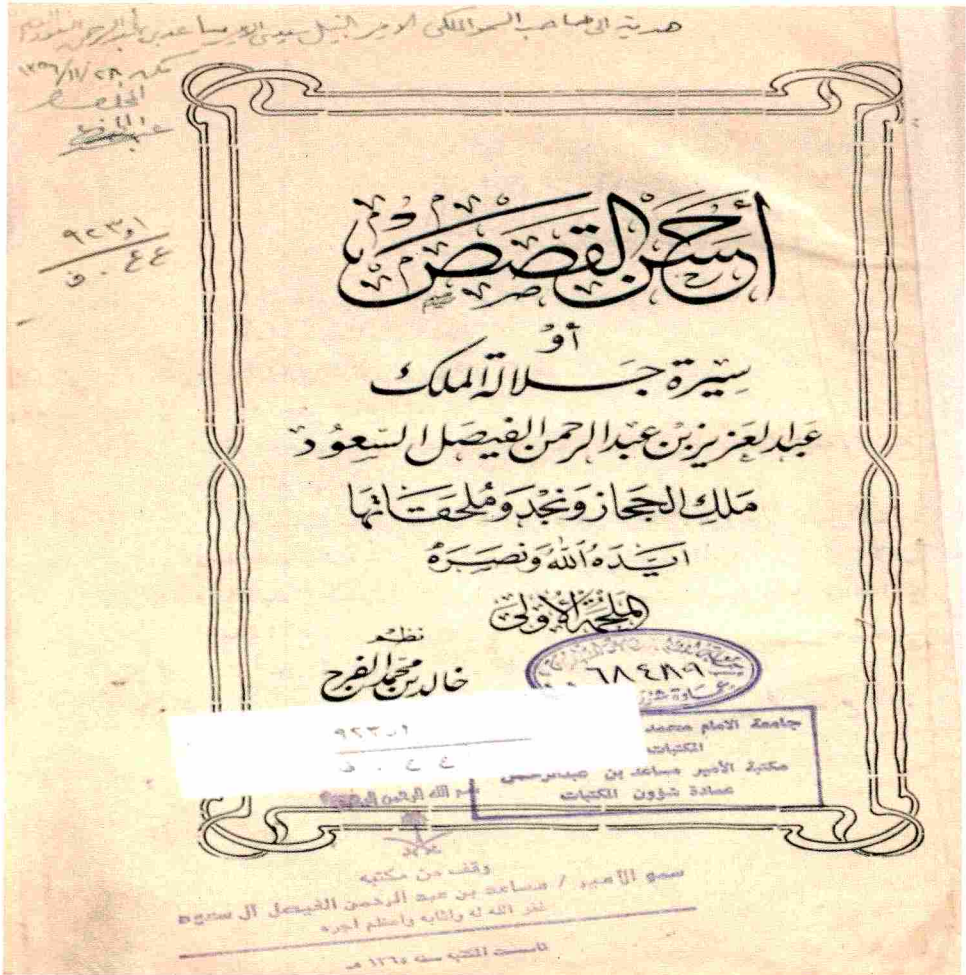 هدية الى صاحب السمو الملكي الامير الجليل سيدي الامير مساعد بن عبد الرحمن
١٣٥٦/١١/٢٨
المخلص
٩٢٣٫١
ف . ع ع
أحسن القصص
أو
سيرة جلالة الملك
عبد العزيز بن عبد الرحمن الفيصل السعود
ملك الحجاز ونجد وملحقاتها
ايده الله ونصره
الملحمة الأولى
نظم
خالد بن محمد الفرج
٦٨٤٨٩
٩٢٣٫١
ف . ع ع
جامعة الامام محمد
المكتبات
مكتبة الأمير مساعد بن عبدالرحمن
عمادة شؤون المكتبات
بسم الله الرحمن الرحيم
وقف من مكتبه
سمو الأمير / مساعد بن عبد الرحمن الفيصل آل سعود
غفر الله له واثابه واعظم اجره
تأسست المكتبه سنه ١٣٦٥ هـ